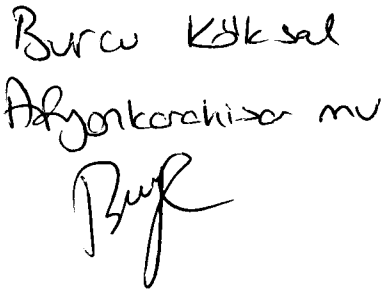 Burcu Köksal
Afyonkarahisar mv